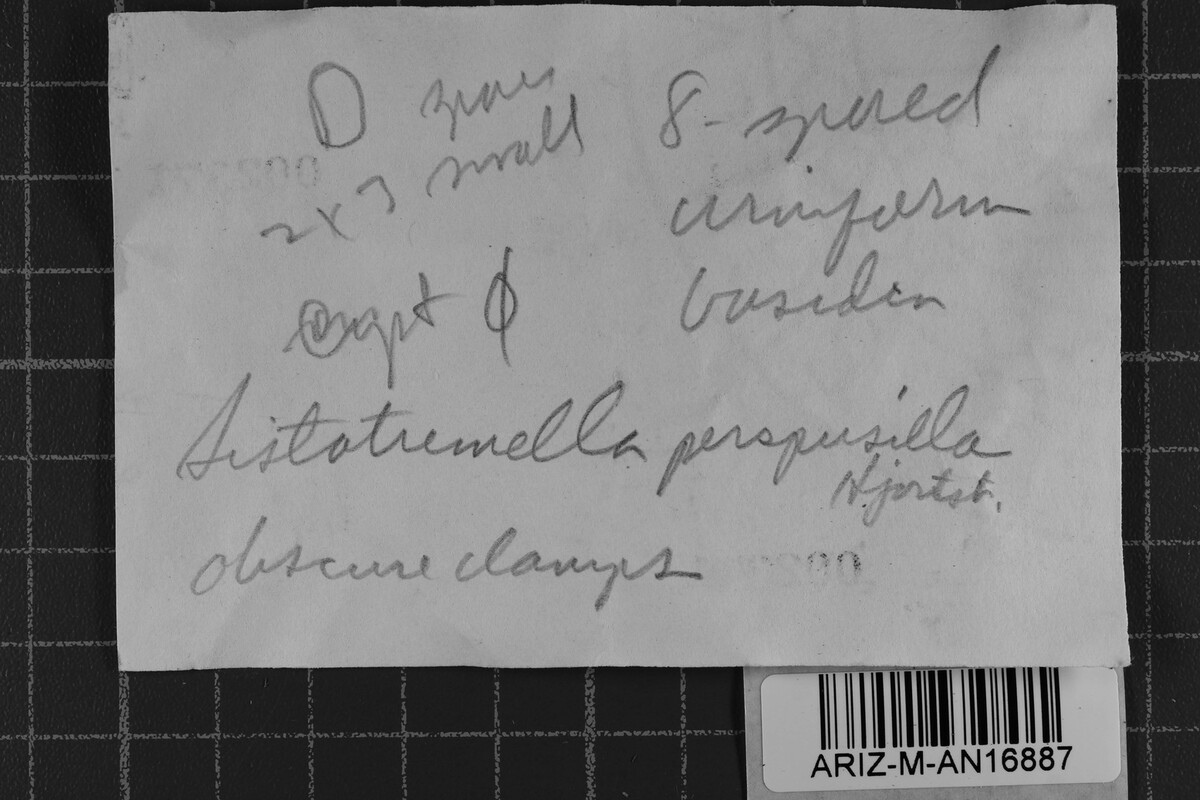 D spores
2 x 3 small
8-spored
urniform
basidia
cyst ϕ
Sistotremella perpusilla
Hjortst.
obscure clamps
ARIZ-M-AN16887